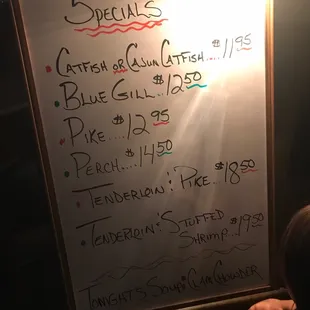 SPECIALS
CATFISH OR CAJUN CATFISH....$11.95
BLUE GILL..$12.50
PIKE....$12.95
PERCH...$14.50
TENDERLOIN : PIKE...$18.50
TENDERLOIN : STUFFED
SHRIMP..$19.50
TONIGHT'S SOUP: CLAM CHOWDER